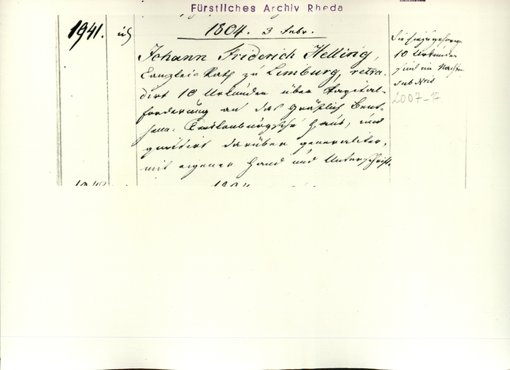 Fürstliches Archiv Rheda
1941. 1804. 3 Febr.
Johann Friderich Helling,
Canzlei Rath zu Limburg, retra-
dirt 10 Urkunden über Kapital-
forderung an das Gräflich Bent-
heim-Tecklenburgische Haus, und
quittirt darüber generaliter,
mit eigener Hand und Unterschrift.
10 Urkunden
sind im
sub Nris
2007-
1804